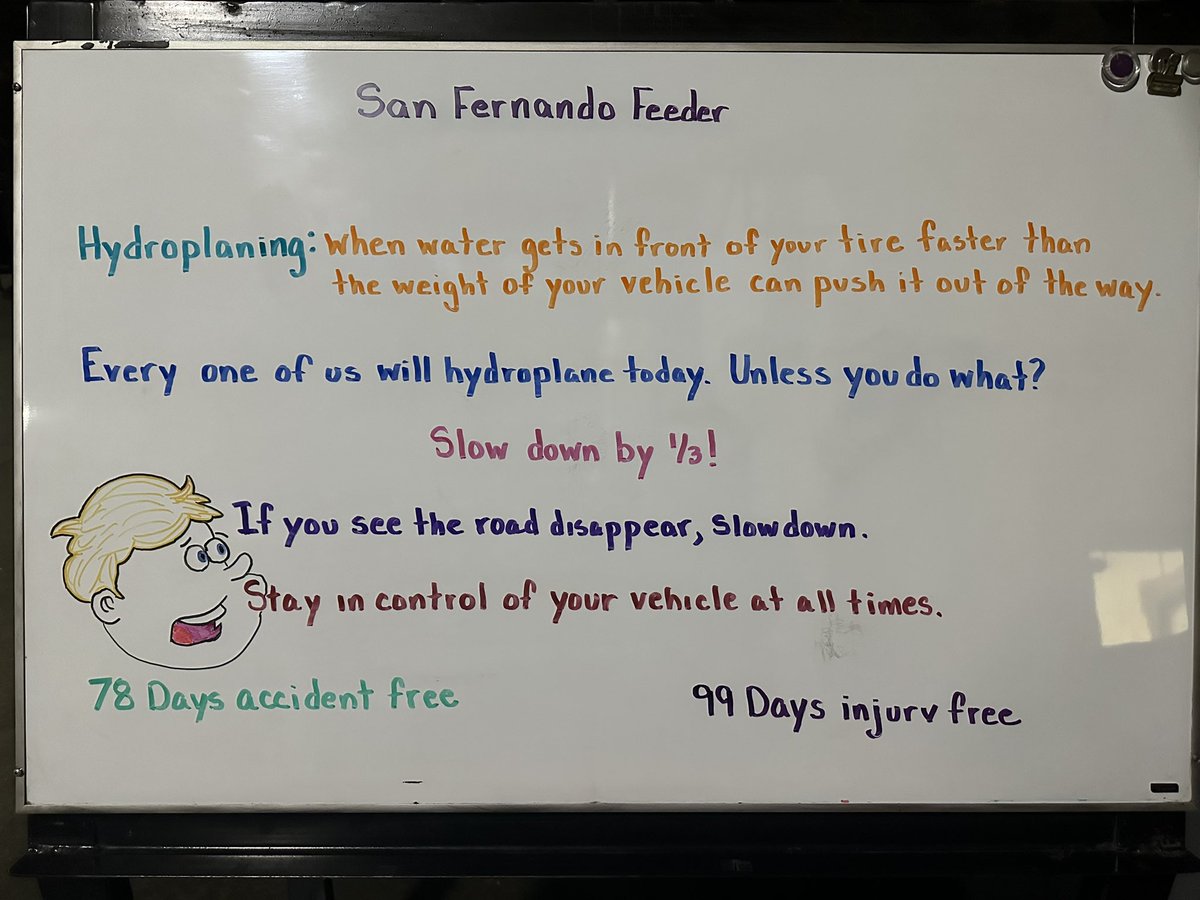 San Fernando Feeder
Hydroplaning: when water gets in front of your tire faster than
the weight of your vehicle can push it out of the way.
Every one of us will hydroplane today. Unless you do what?
Slow down by 1/3!
If you see the road disappear, slow down.
Stay in control of your vehicle at all times.
78 Days accident free
99 Days injury free